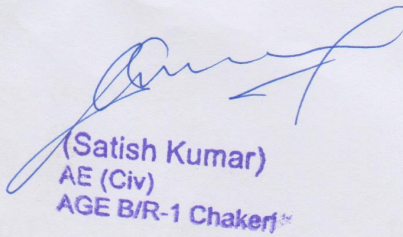 (Satish Kumar)
AE (Civ)
AGE B/R-1 Chakeri